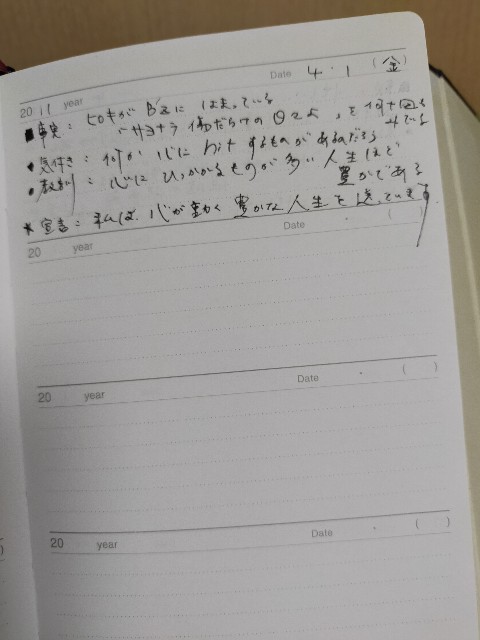 20 11 year Date 4・1 (金)
■事実：ヒロキが B'zに はまっている
"サヨナラ傷だらけの日々よ" を何十回も
みている
・気付き：何か 心に hit するものがあるんだろう
・教訓：心に ひっかかるものが多い 人生ほど
豊かである
★宣言：私は、心が動く 豊かな 人生を 送っています
20 year Date ・ ( )
20 year Date ・ ( )
20 year Date ・ ( )